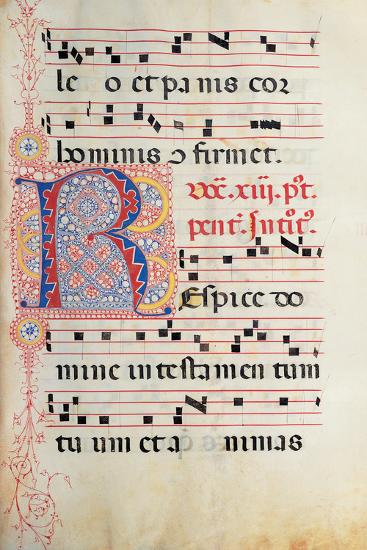 le o et pa nis cor
hominis ↄfirmet.
Dōc̄. xiij. p̄t.
pent̄. Introit̄.
REspice do
mine in testa men tum
tu um et a nimas